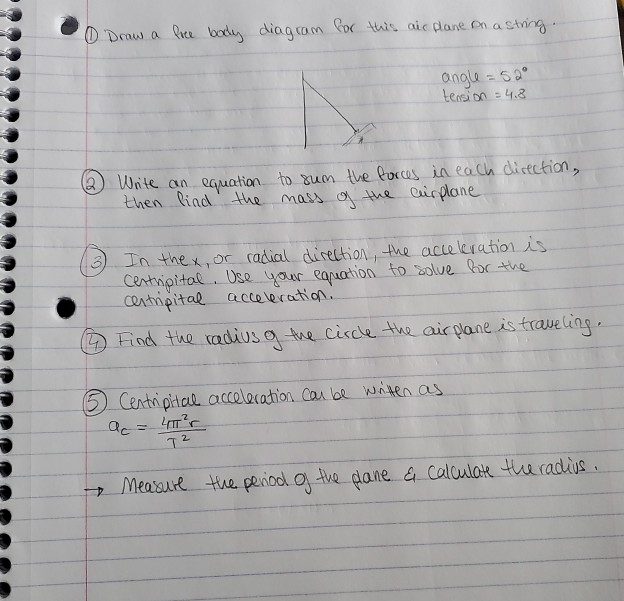 ① Draw a free body diagram for this airplane on a string.
angle = 52°
tension = 4.8
② Write an equation to sum the forces in each direction,
then find the mass of the airplane
③ In the x, or radial direction, the acceleration is
centripital. Use your equation to solve for the
centripital acceleration.
④ Find the radius of the circle the airplane is traveling.
⑤ Centripital acceleration can be written as
ac = 4π²r / T²
→ Measure the period of the plane & calculate the radius.